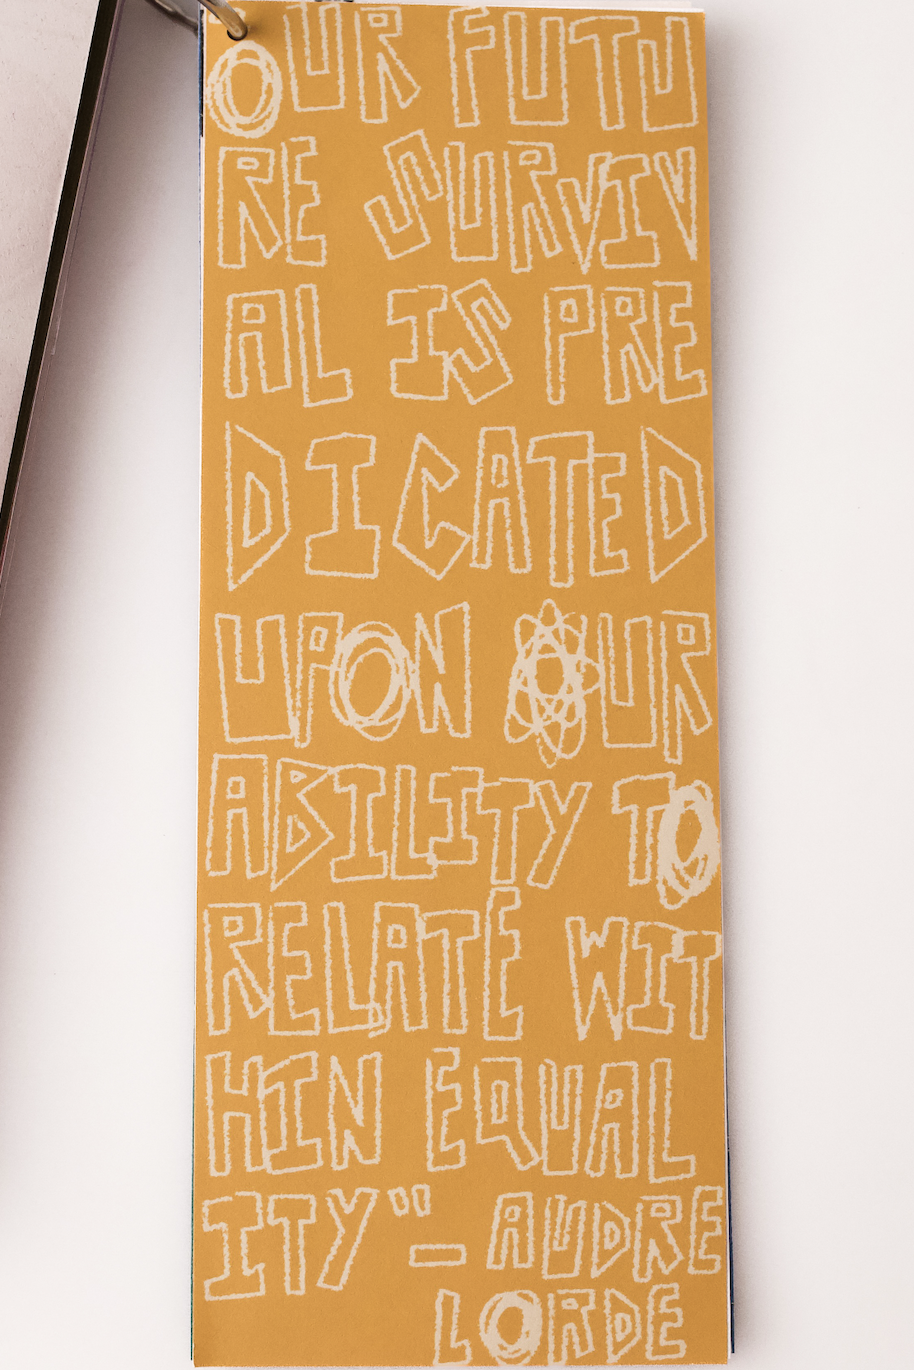 OUR FUTU
RE SURVIV
AL IS PRE
DICATED
UPON OUR
ABILITY TO
RELATE WIT
HIN EQUAL
ITY" – AUDRE
LORDE